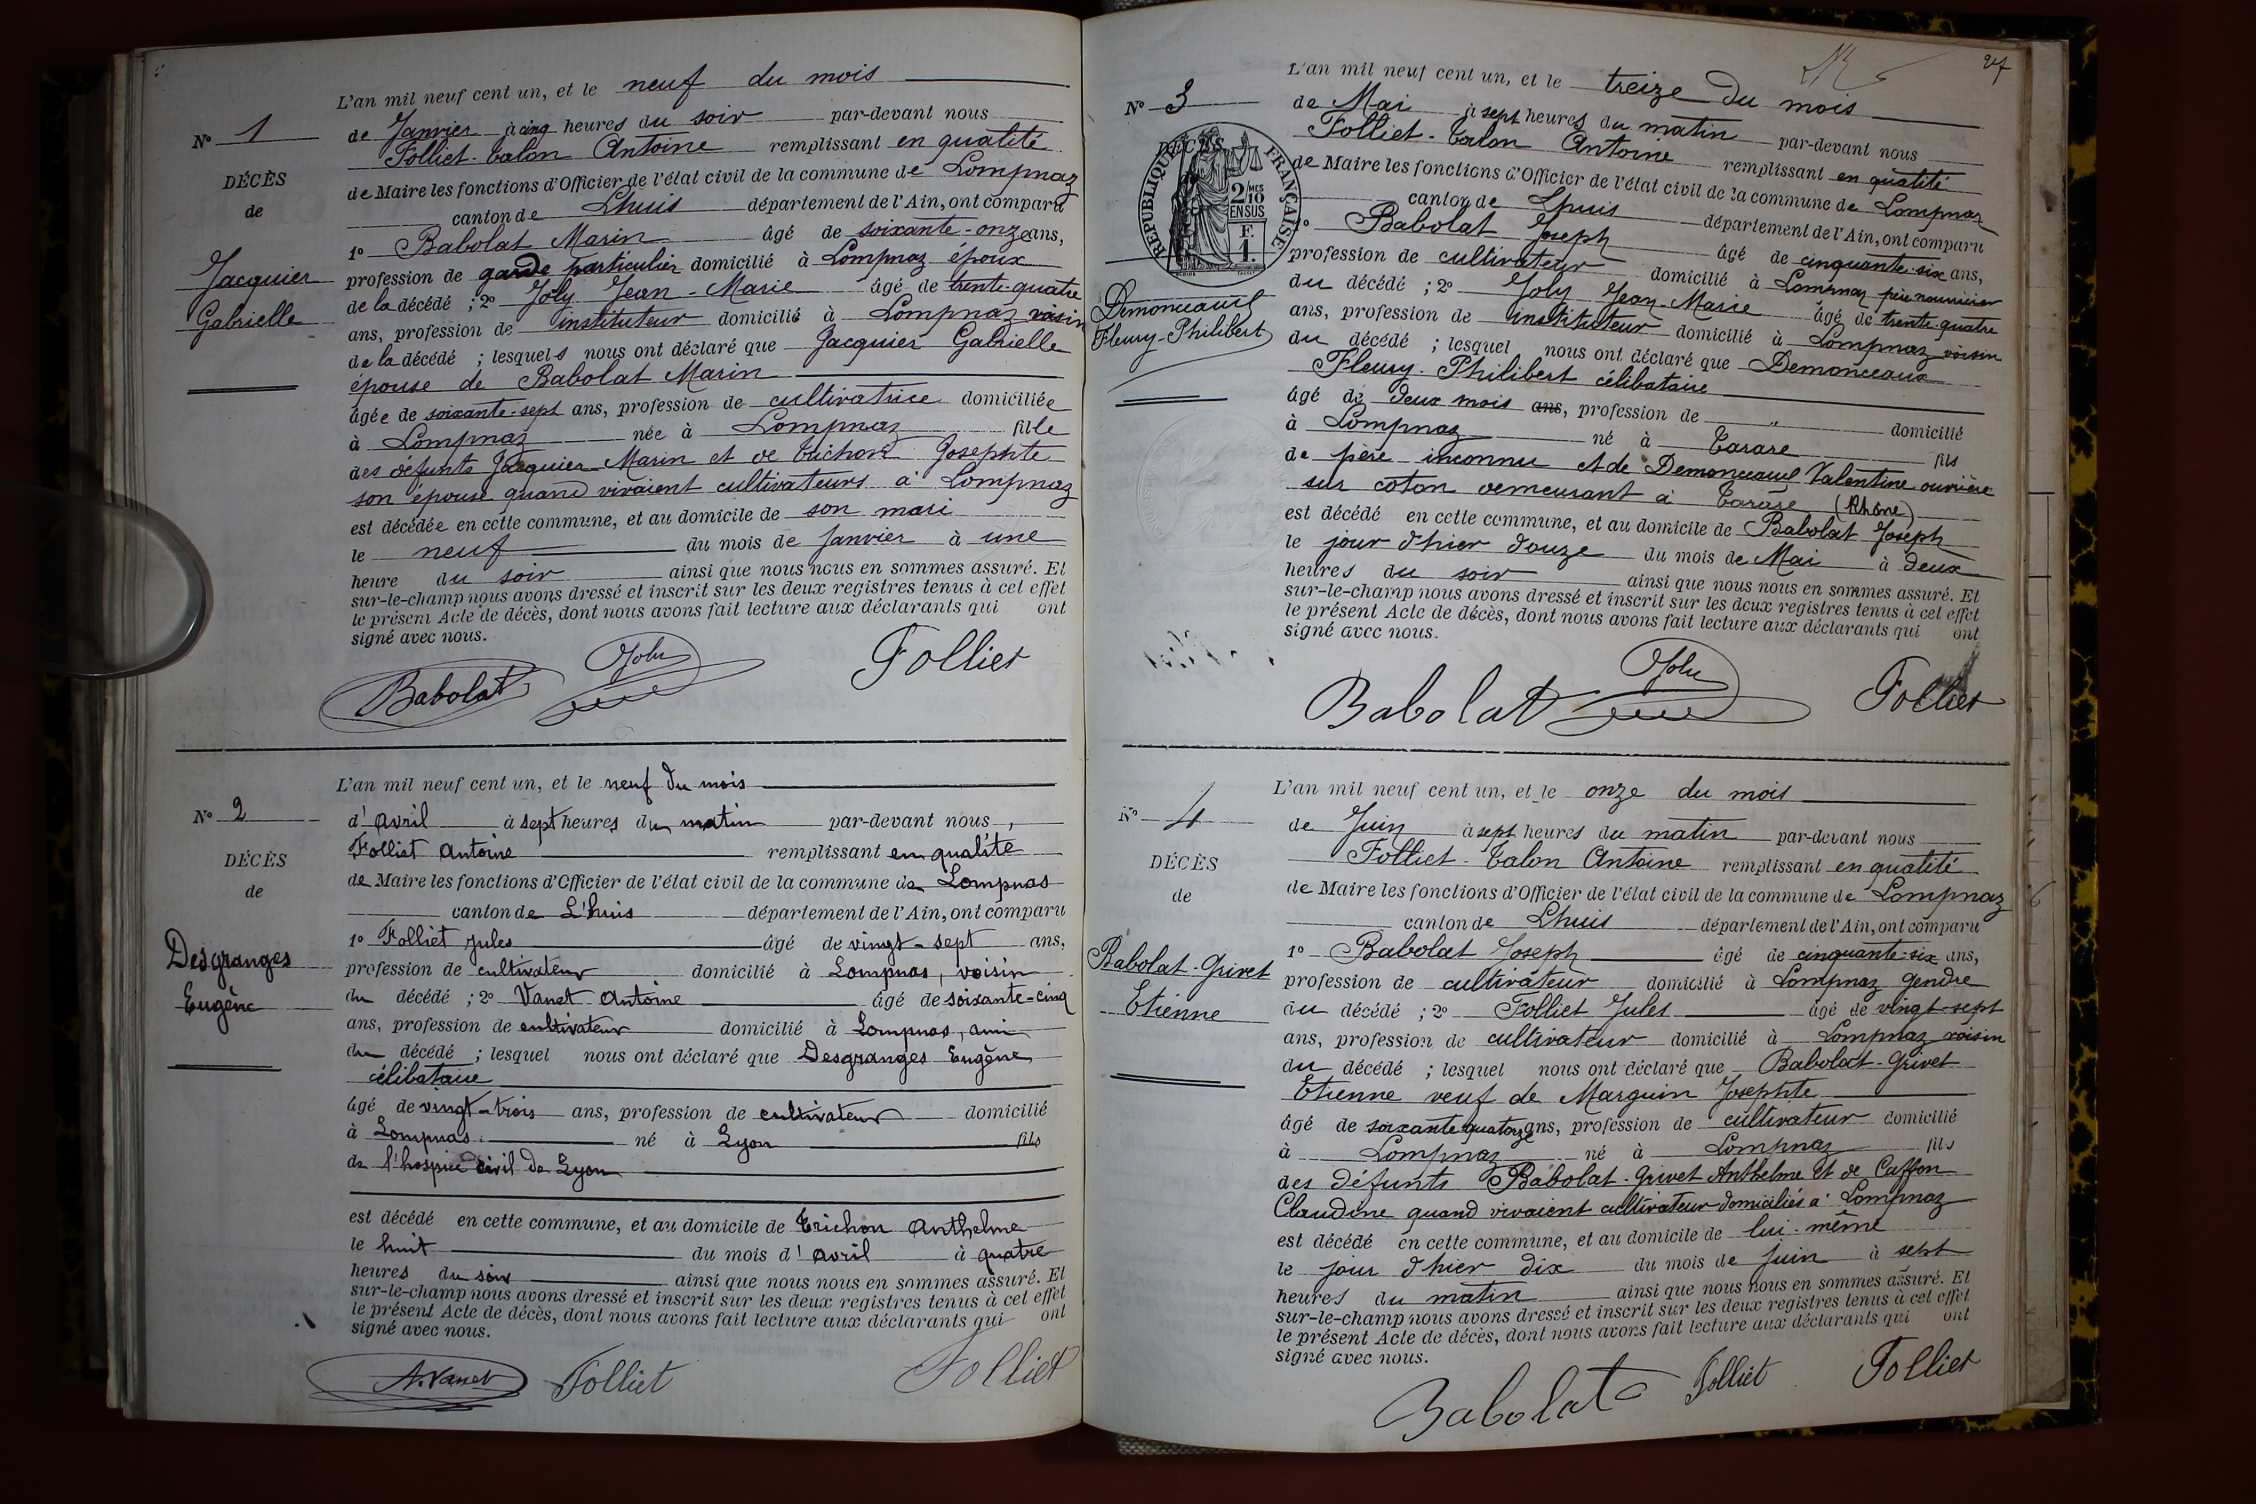 L'an mil neuf cent un, et le neuf du mois
N° 1
de Janvier à cinq heures du soir par-devant nous
Folliet-Talon Antoine remplissant en qualité
DÉCÈS
de Maire les fonctions d'Officier de l'état civil de la commune de Lompnaz
de
canton de Lhuis département de l'Ain, ont comparu
1° Babolat Marin âgé de soixante-onze ans,
Jacquier
profession de garde particulier domicilié à Lompnaz époux
Gabrielle
de la décédé ; 2° Joly Jean-Marie âgé de trente-quatre
ans, profession de instituteur domicilié à Lompnaz voisin
de la décédé ; lesquels nous ont déclaré que Jacquier Gabrielle
épouse de Babolat Marin
âgée de soixante-sept ans, profession de cultivatrice domiciliée
à Lompnaz née à Lompnaz fille
des défunts Jacquier Marin et de Trichon Josephte
son épouse quand vivaient cultivateurs à Lompnaz
est décédée en cette commune, et au domicile de son mari
le neuf du mois de Janvier à une
heure du soir ainsi que nous nous en sommes assuré. Et
sur-le-champ nous avons dressé et inscrit sur les deux registres tenus à cet effet
le présent Acte de décès, dont nous avons fait lecture aux déclarants qui ont
signé avec nous.
Babolat Joly Folliet
L'an mil neuf cent un, et le neuf du mois
N° 2
d'avril à sept heures du matin par-devant nous,
Folliet Antoine remplissant en qualité
DÉCÈS
de Maire les fonctions d'Officier de l'état civil de la commune de Lompnas
de
canton de L'huis département de l'Ain, ont comparu
1° Folliet Jules âgé de vingt-sept ans,
Desgranges
profession de cultivateur domicilié à Lompnas, voisin
Eugène
du décédé ; 2° Vanet Antoine âgé de soixante-cinq
ans, profession de cultivateur domicilié à Lompnas, ami
du décédé ; lesquel nous ont déclaré que Desgranges Eugène
célibataire
âgé de vingt-trois ans, profession de cultivateur domicilié
à Lompnas né à Lyon fils
de l'hospice civil de Lyon
est décédé en cette commune, et au domicile de Trichon Anthelme
le huit du mois d'avril à quatre
heures du soir ainsi que nous nous en sommes assuré. Et
sur-le-champ nous avons dressé et inscrit sur les deux registres tenus à cet effet
le présent Acte de décès, dont nous avons fait lecture aux déclarants qui ont
signé avec nous.
A. Vanet Folliet Folliet
27
L'an mil neuf cent un, et le treize du mois
N° 3
de Mai à sept heures du matin par-devant nous
Folliet-Talon Antoine remplissant en qualité
DÉCÈS
RÉPUBLIQUE FRANÇAISE
2/10 MES
EN SUS
F.
1.
de Maire les fonctions d'Officier de l'état civil de la commune de Lompnaz
canton de Lhuis département de l'Ain, ont comparu
1° Babolat Joseph âgé de cinquante-six ans,
profession de cultivateur domicilié à Lompnaz père nourricier
Demonceaux
Fleury-Philibert
du décédé ; 2° Joly Jean-Marie âgé de trente-quatre
ans, profession de instituteur domicilié à Lompnaz voisin
du décédé ; lesquel nous ont déclaré que Demonceaux
Fleury-Philibert célibataire
âgé de deux mois ans, profession de " domicilié
à Lompnaz né à Tarare fils
de père inconnu et de Demonceaux Valentine ouvrière
sur coton demeurant à Tarare (Rhône)
est décédé en cette commune, et au domicile de Babolat Joseph
le jour d'hier douze du mois de Mai à deux
heures du soir ainsi que nous nous en sommes assuré. Et
sur-le-champ nous avons dressé et inscrit sur les deux registres tenus à cet effet
le présent Acte de décès, dont nous avons fait lecture aux déclarants qui ont
signé avec nous.
Babolat Joly Folliet
L'an mil neuf cent un, et le onze du mois
N° 4
de Juin à sept heures du matin par-devant nous
Folliet-Talon Antoine remplissant en qualité
DÉCÈS
de Maire les fonctions d'Officier de l'état civil de la commune de Lompnaz
de
canton de Lhuis département de l'Ain, ont comparu
1° Babolat Joseph âgé de cinquante-six ans,
Babolat-Grivet
profession de cultivateur domicilié à Lompnaz gendre
Etienne
du décédé ; 2° Folliet Jules âgé de vingt-sept
ans, profession de cultivateur domicilié à Lompnaz voisin
du décédé ; lesquel nous ont déclaré que Babolat-Grivet
Etienne veuf de Marguin Josephte
âgé de soixante quatorze ans, profession de cultivateur domicilié
à Lompnaz né à Lompnaz fils
des défunts Babolat-Grivet Anthelme et de Caffon
Claudine quand vivaient cultivateur domiciliés à Lompnaz
est décédé en cette commune, et au domicile de lui-même
le jour d'hier dix du mois de Juin à sept
heures du matin ainsi que nous nous en sommes assuré. Et
sur-le-champ nous avons dressé et inscrit sur les deux registres tenus à cet effet
le présent Acte de décès, dont nous avons fait lecture aux déclarants qui ont
signé avec nous.
Babolat Folliet Folliet